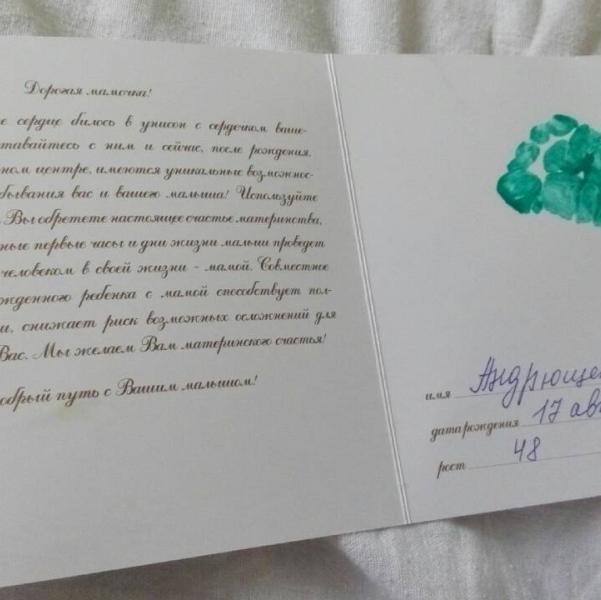 Дорогая мамочка!
сердце билось в унисон с сердечком ваше-
тавайтесь с ним и сейчас, после рождения.
ном центре, имеются уникальные возможнос-
бывания вас и вашего малыша! Используйте
Вы обретете настоящее счастье материнства,
ные первые часы и дни жизни малыш проведет
человеком в своей жизни - мамой. Совместное
жденного ребенка с мамой способствует пол-
и, снижает риск возможных осложнений для
Вас. Мы желаем Вам материнского счастья!
обрый путь с Вашим малышом!
имя Андрюще
дата рождения 17 ав
рост 48